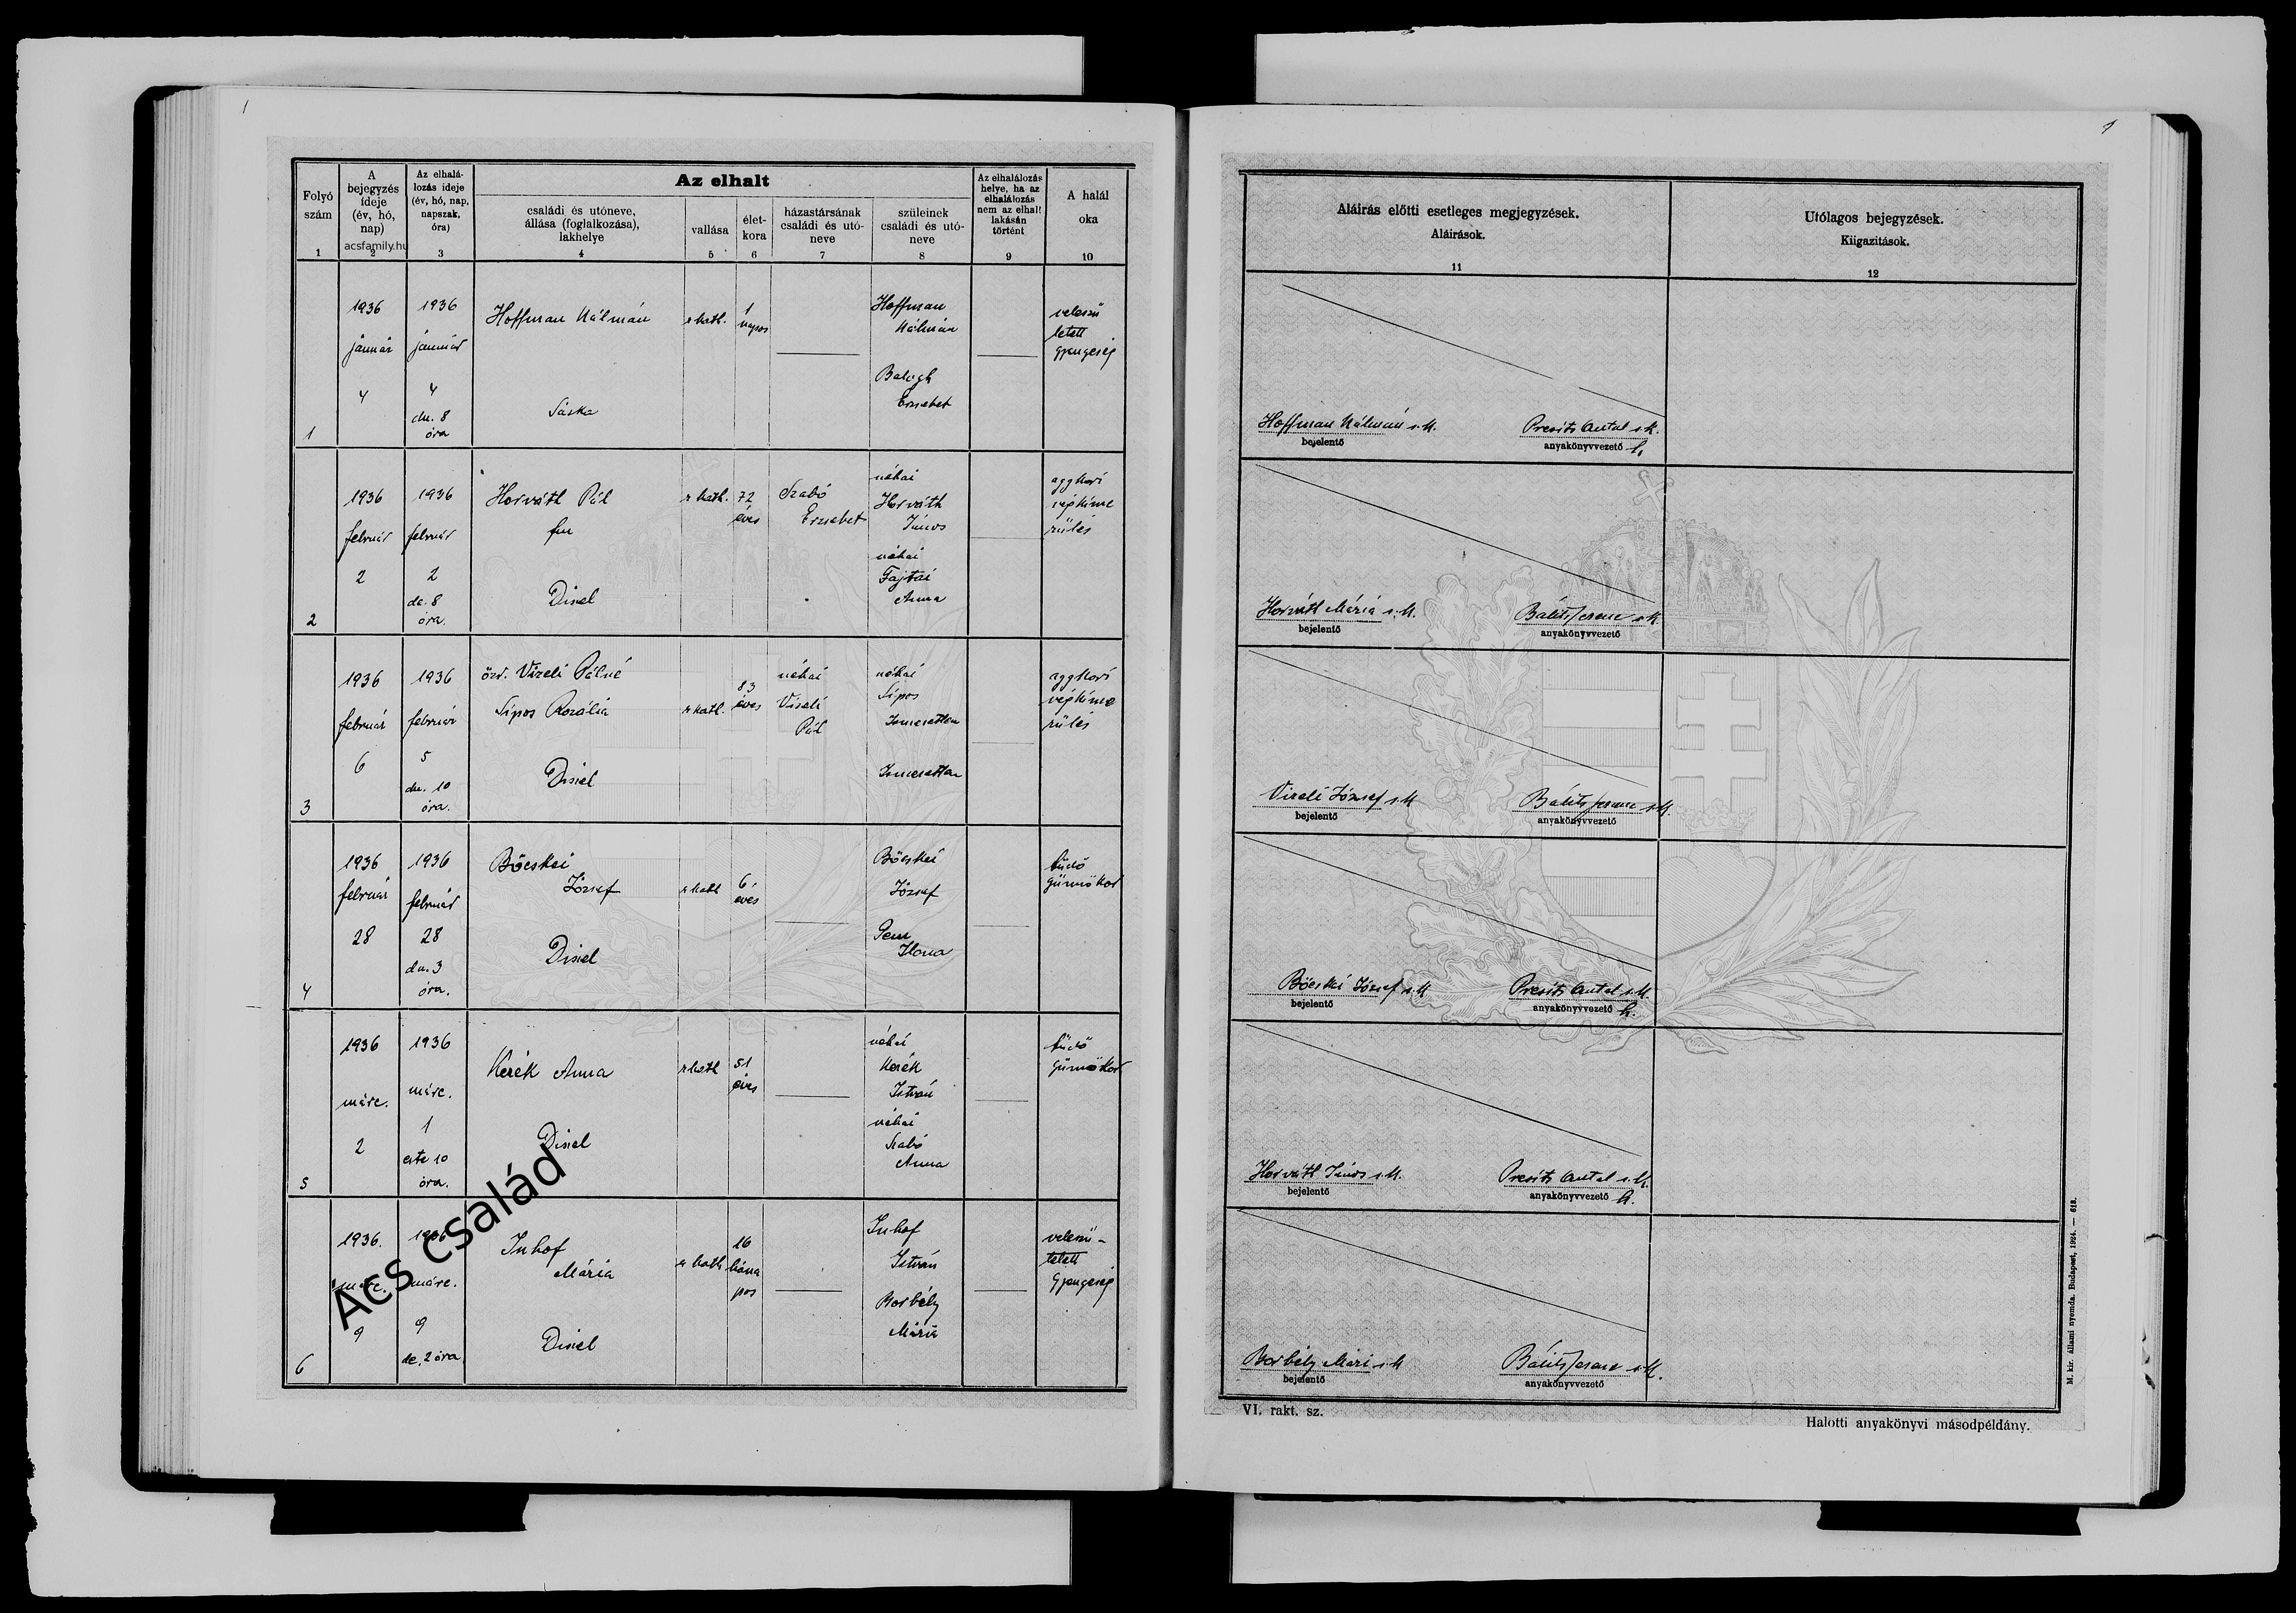 1
Folyó
szám
1
A
bejegyzés
ideje
(év, hó,
nap)
acsfamily.hu
2
Az elhalá-
lozás ideje
(év, hó, nap,
napszak,
óra)
3
Az elhalt
családi és utóneve,
állása (foglalkozása),
lakhelye
4
vallása
5
élet-
kora
6
házastársának
családi és utó-
neve
7
szüleinek
családi és utó-
neve
8
Az elhalálozás
helye, ha az
elhalálozás
nem az elhalt
lakásán
történt
9
A halál
oka
10
1
1936
január
4
1936
január
4
du. 8
óra
Hoffman Kálmán
Sáska
r kath.
1
napos
Hoffman
Kálmán
Balogh
Erzsébet
veleszü
letett
gyengeség
2
1936
február
2
1936
február
2
de. 8
óra.
Horváth Pál
Diszel
r kath.
72
éves
Szabó
Erzsébet
néhai
Horváth
János
néhai
Fajtai
Anna
aggkori
végkime
rülés
3
1936
február
6
1936
február
5
du. 10
óra.
özv. Vizeli Pálné
Sipos Rozália
Diszel
r kath.
83
éves
néhai
Vizeli
Pál
néhai
Sipos
Ismeretlen
Ismeretlen
aggkori
végkime
rülés
4
1936
február
28
1936
február
28
du. 3
óra.
Böcskei
József
Diszel
r kath
6
éves
Böcskei
József
Ilona
tüdő
gümőkor
5
1936
márc.
2
1936
márc.
1
este 10
óra.
Kerék Anna
Diszel
r kath
51
éves
néhai
Kerék
István
néhai
Szabó
Anna
tüdő
gümőkor
6
1936.
márc.
9
1936
márc.
9
de. 2 óra
Inhof
Mária
Diszel
r kath
16
hóna
pos
Inhof
István
Borbély
Mária
veleszü-
letett
gyengeség
Acs család
1
Aláírás előtti esetleges megjegyzések.
Aláírások.
11
Utólagos bejegyzések.
Kiigazitások.
12
Hoffman Kálmán s.k. Presits Antal s.k.
bejelentő anyakönyvvezető h.
Horváth Mária s.k. Bálits Ferenc s.k.
bejelentő anyakönyvvezető
Vizeli József s.k Bálits Ferenc s.k.
bejelentő anyakönyvvezető
Böcskei József s.k Presits Antal s.k.
bejelentő anyakönyvvezető h.
Horváth János s.k. Presits Antal s.k.
bejelentő anyakönyvvezető h.
Borbély Mári s.k Bálits Ferenc s.k.
bejelentő anyakönyvvezető
VI. rakt. sz.
Halotti anyakönyvi másodpéldány.
M. kir. állami nyomda. Budapest, 1924. — 618.